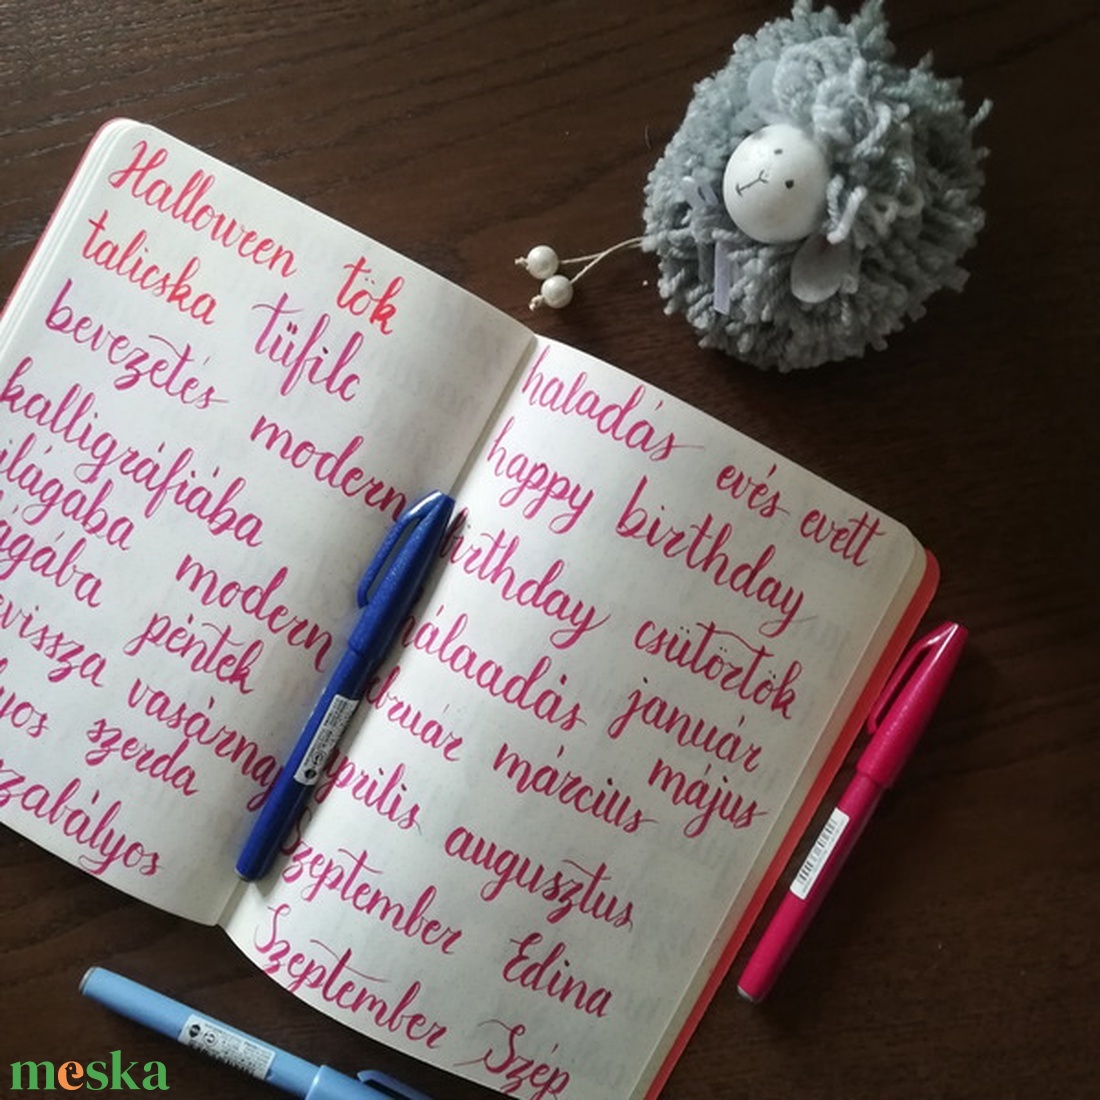 Halloween tök
talicska tüfilc
bevezetés modern
kalligráfiába
ilágába modern
ágába péntek
evissza vasárnap
lyos szerda
szabályos
haladás evés evett
happy birthday
birthday csütörtök
hálaadás január
ebruár március május
április augusztus
Szeptember Edina
Szeptember Szép
meska